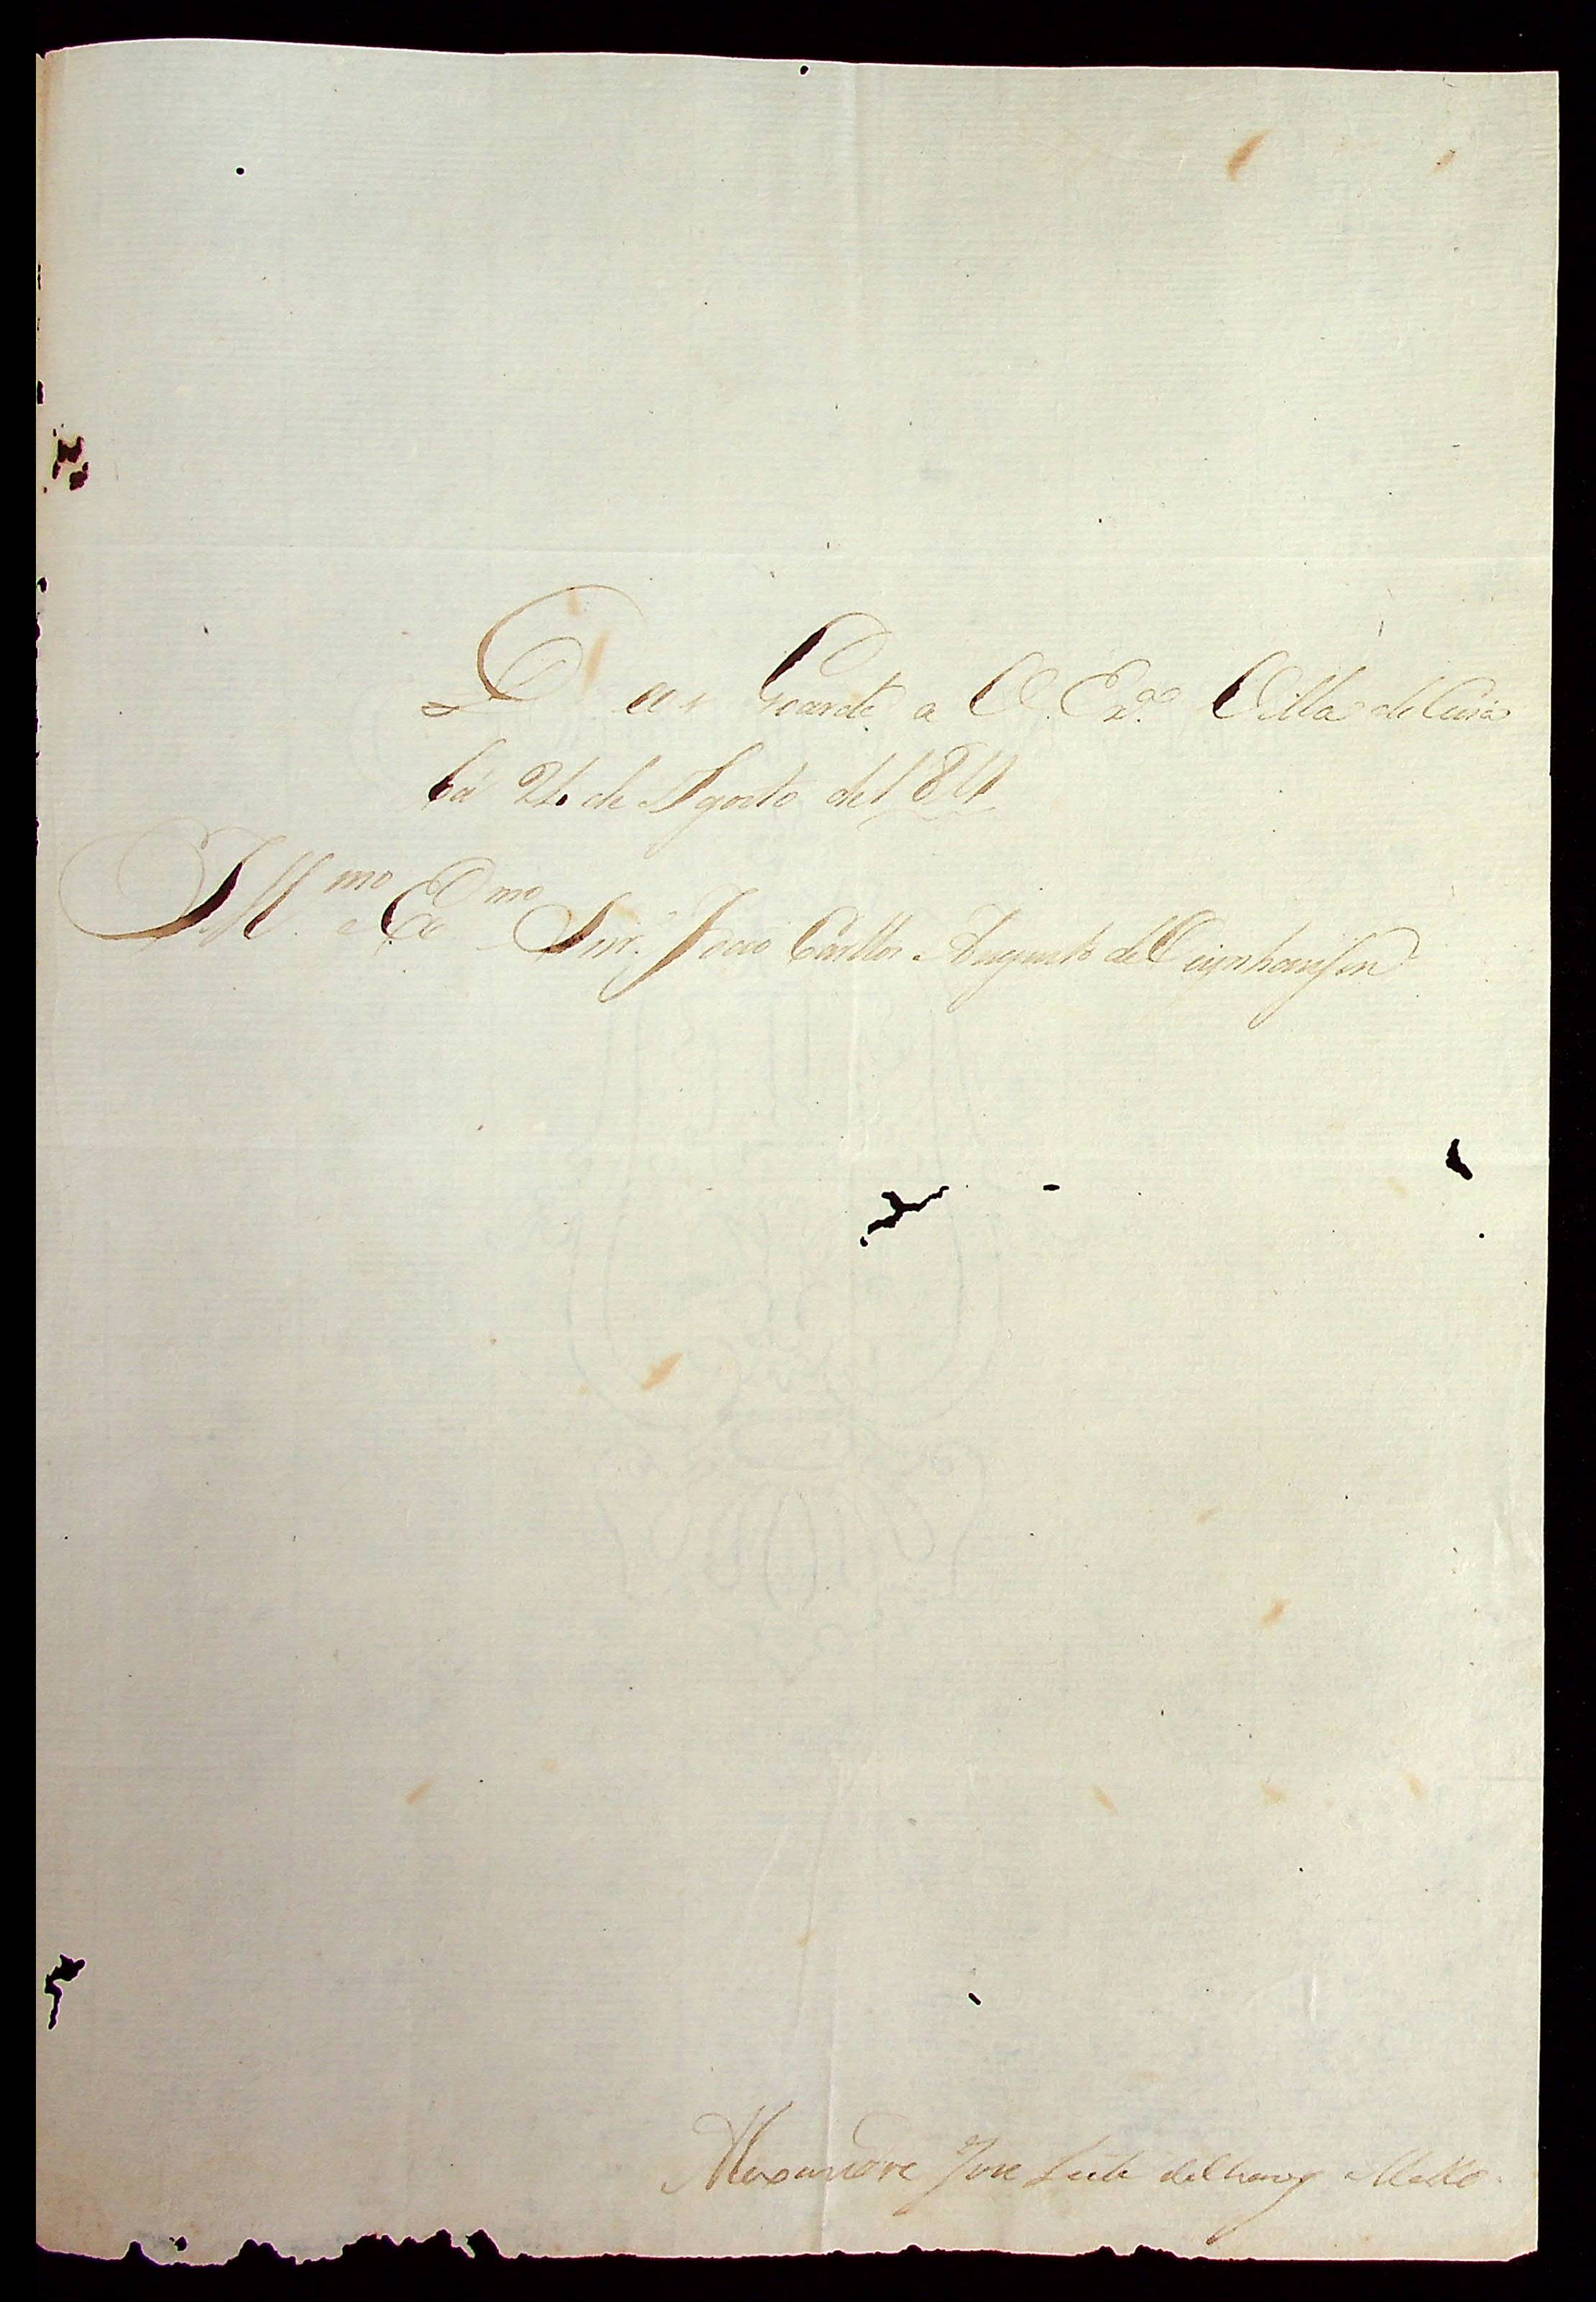 Deos Goarde a V. Ex.ª Villa de Cuia
bá 24 de Agosto de 1811
Ill.mo e Ex.mo Snr. João Carllos Augusto de Oeynhausen
Alexandre Jose Leite de Chaves Mello